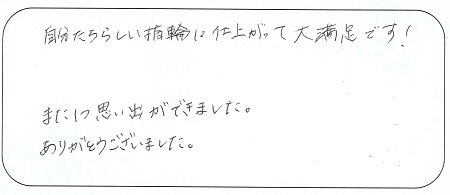 自分たちらしい指輪に仕上がって大満足です!
また1つ思い出ができました。
ありがとうございました。